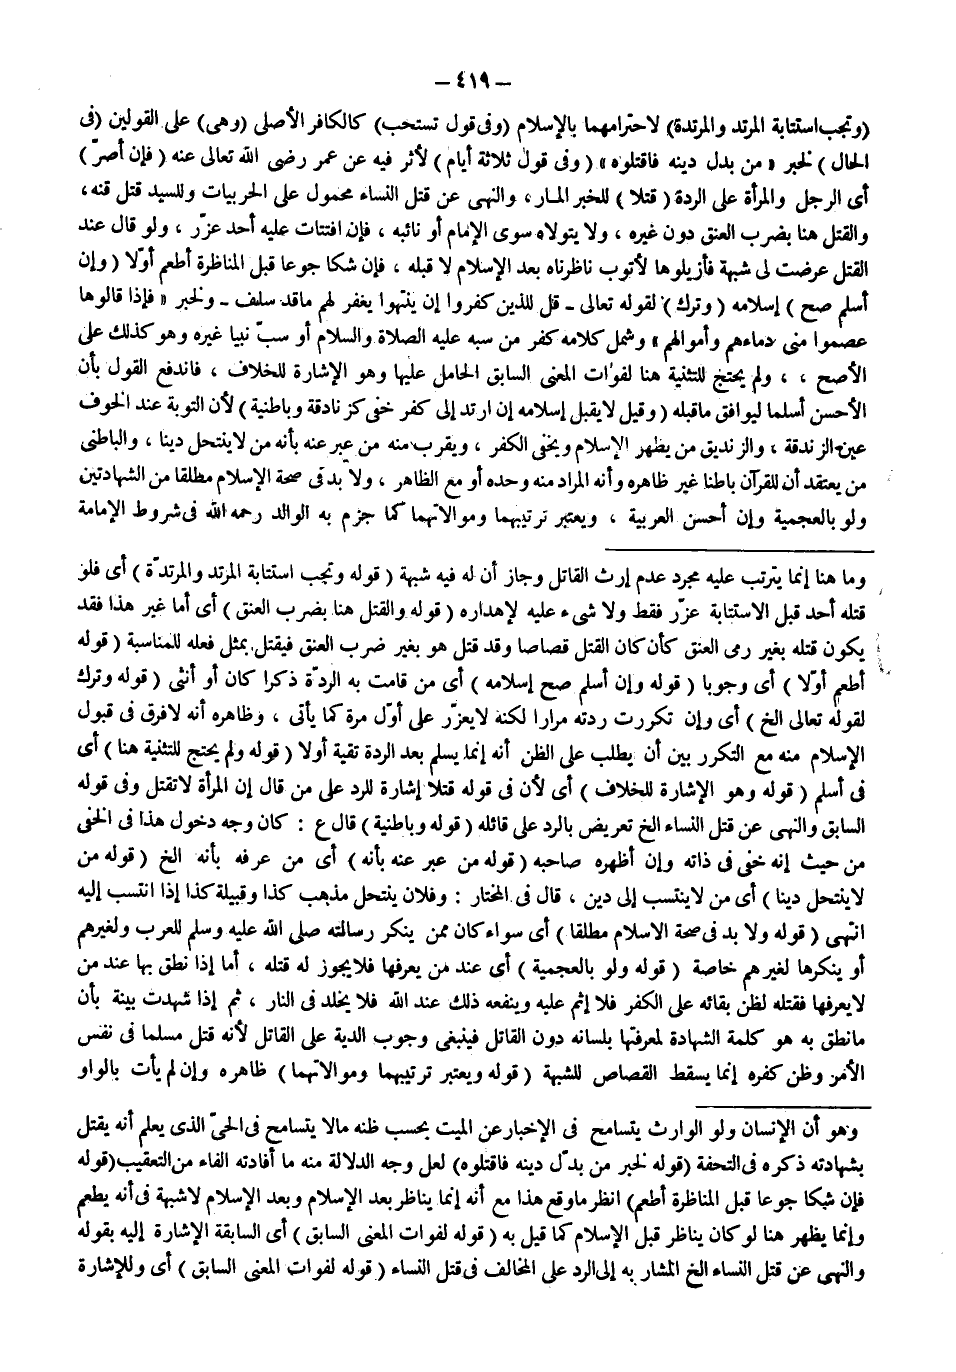 — ٤١٩ —
(وتجب استتابة المرتد والمرتدة) لاحترامهما بالإسلام (وفى قول تستحب) كالكافر الأصلى (وهى) على القولين (فى
الحال) لخبر « من بدل دينه فاقتلوه » (وفى قول ثلاثة أيام) لأثر فيه عن عمر رضى الله تعالى عنه (فإن أصرّ)
أى الرجل والمرأة على الردة (قتلا) للخبر المار، والنهى عن قتل النساء محمول على الحربيات وللسيد قتل قنه،
والقتل هنا بضرب العنق دون غيره ، ولا يتولاه سوى الإمام أو نائبه ، فإن افتات عليه أحد عزّر ، ولو قال عند
القتل عرضت لى شبهة فأزيلوها لأتوب ناظرناه بعد الإسلام لا قبله ، فإن شكا جوعا قبل المناظرة أطعم أوّلا (وإن
أسلم صح) إسلامه (وترك) لقوله تعالى ـ قل للذين كفروا إن ينتهوا يغفر لهم ماقد سلف ـ ولخبر « فإذا قالوها
عصموا منى دماءهم وأموالهم » وشمل كلامه كفر من سبه عليه الصلاة والسلام أو سبّ نبيا غيره وهو كذلك على
الأصح ، ، ولم يحتج للتثنية هنا لفوات المعنى السابق الحامل عليها وهو الإشارة للخلاف ، فاندفع القول بأن
الأحسن أسلما ليوافق ماقبله (وقيل لايقبل إسلامه إن ارتد إلى كفر خفى كزنادقة وباطنية) لأن التوبة عند الخوف
عين الزندقة ، والزنديق من يظهر الإسلام ويخفى الكفر ، ويقرب منه من عبر عنه بأنه من لاينتحل دينا ، والباطنى
من يعتقد أن للقرآن باطنا غير ظاهره وأنه المراد منه وحده أو مع الظاهر ، ولا بد فى صحة الإسلام مطلقا من الشهادتين
ولو بالعجمية وإن أحسن العربية ، ويعتبر ترتيبهما وموالاتهما كما جزم به الوالد رحمه الله فى شروط الإمامة
وما هنا إنما يترتب عليه مجرد عدم إرث القاتل وجاز أن له فيه شبهة (قوله وتجب استتابة المرتد والمرتدّة) أى فلو
قتله أحد قبل الاستتابة عزّر فقط ولا شىء عليه لإهداره (قوله والقتل هنا بضرب العنق) أى أما غير هذا فقد
يكون قتله بغير رمى العنق كأن كان القتل قصاصا وقد قتل هو بغير ضرب العنق فيقتل بمثل فعله للمناسبة (قوله
أطعم أوّلا) أى وجوبا (قوله وإن أسلم صح إسلامه) أى من قامت به الردّة ذكرا كان أو أنثى (قوله وترك
لقوله تعالى الخ) أى وإن تكررت ردته مرارا لكنه لايعزّر على أوّل مرة كما يأتى ، وظاهره أنه لافرق فى قبول
الإسلام منه مع التكرر بين أن يطلب على الظن أنه إنما يسلم بعد الردة تقية أولا (قوله ولم يحتج للتثنية هنا) أى
فى أسلم (قوله وهو الإشارة للخلاف) أى لأن فى قوله قتلا إشارة للرد على من قال إن المرأة لاتقتل وفى قوله
السابق والنهى عن قتل النساء الخ تعريض بالرد على قائله (قوله وباطنية) قال ع : كان وجه دخول هذا فى الخفى
من حيث إنه خفى فى ذاته وإن أظهره صاحبه (قوله من عبر عنه بأنه) أى من عرفه بأنه الخ (قوله من
لاينتحل دينا) أى من لاينتسب إلى دين ، قال فى المختار : وفلان ينتحل مذهب كذا وقبيلة كذا إذا انتسب إليه
انتهى (قوله ولا بد فى صحة الاسلام مطلقا) أى سواء كان ممن ينكر رسالته صلى الله عليه وسلم للعرب ولغيرهم
أو ينكرها لغيرهم خاصة (قوله ولو بالعجمية) أى عند من يعرفها فلايجوز له قتله ، أما إذا نطق بها عند من
لايعرفها فقتله لظن بقائه على الكفر فلا إثم عليه وينفعه ذلك عند الله فلا يخلد فى النار ، ثم إذا شهدت بينة بأن
مانطق به هو كلمة الشهادة لمعرفتها بلسانه دون القاتل فينبغى وجوب الدية على القاتل لأنه قتل مسلما فى نفس
الأمر وظن كفره إنما يسقط القصاص للشبهة (قوله ويعتبر ترتيبهما وموالاتهما) ظاهره وإن لم يأت بالواو
وهو أن الإنسان ولو الوارث يتسامح فى الإخبار عن الميت بحسب ظنه مالا يتسامح فى الحىّ الذى يعلم أنه يقتل
بشهادته ذكره فى التحفة (قوله لخبر من بدّل دينه فاقتلوه) لعل وجه الدلالة منه ما أفادته الفاء من التعقيب (قوله
فإن شكا جوعا قبل المناظرة أطعم) انظر ماوقع هذا مع أنه إنما يناظر بعد الإسلام وبعد الإسلام لاشبهة فى أنه يطعم
وإنما يظهر هنا لو كان يناظر قبل الإسلام كما قيل به (قوله لفوات المعنى السابق) أى السابقة الإشارة إليه بقوله
والنهى عن قتل النساء الخ المشار به إلى الرد على المخالف فى قتل النساء (قوله لفوات المعنى السابق) أى وللإشارة